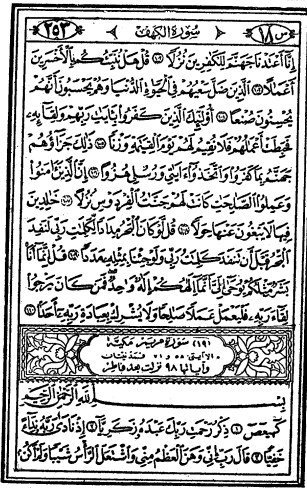 س ١٨ سورة الكهف ٢٥٣
إنا أعتدنا جهنم للكفرين نزلا قل هل ننبئكم بالأخسرين
أعملا الذين ضل سعيهم في الحيوة الدنيا وهم يحسبون أنهم
يحسنون صنعا أولئك الذين كفروا بآيات ربهم ولقائه
فحبطت أعملهم فلا نقيم لهم يوم القيمة وزنا ذلك جزاؤهم
جهنم بما كفروا واتخذوا ءايتي ورسلي هزوا إن الذين ءامنوا
وعملوا الصالحات كانت لهم جنت الفردوس نزلا خالدين
فيها لا يبغون عنها حولا قل لو كان البحر مدادا لكلمت ربي لنفد
البحر قبل أن تنفد كلمات ربي ولو جئنا بمثله مددا قل إنما أنا
بشر مثلكم يوحى إلي أنما إلهكم إله واحد فمن كان يرجوا
لقاء ربه فليعمل عملا صالحا ولا يشرك بعبادة ربه أحدا
(١٩) سورة مريم مكية
إلا آيتي ٥٨ و ٧١ فمدنيتان
وآياتها ٩٨ نزلت بعد فاطر
بسم الله الرحمن الرحيم
كهيعص ذكر رحمت ربك عبده زكريا إذ نادى ربه نداء
خفيا قال رب إني وهن العظم مني واشتعل الرأس شيبا ولم أكن